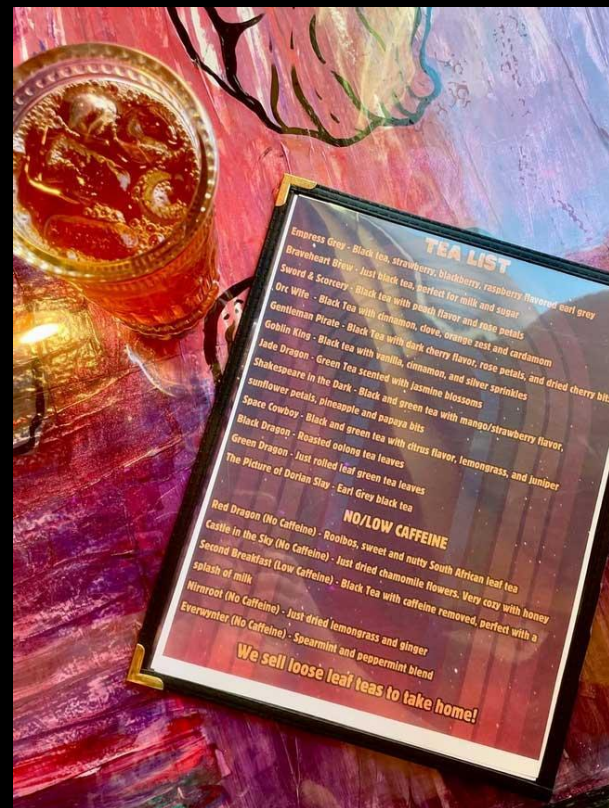 TEA LIST
Empress Grey - Black tea, strawberry, blackberry, raspberry flavored earl grey
Braveheart Brew - Just black tea, perfect for milk and sugar
Sword & Scorcery - Black tea with peach flavor and rose petals
Orc Wife - Black Tea with cinnamon, clove, orange zest and cardamom
Gentleman Pirate - Black Tea with dark cherry flavor, rose petals, and dried cherry bits
Goblin King - Black tea with vanilla, cinnamon, and silver sprinkles
Jade Dragon - Green Tea scented with jasmine blossoms
Shakespeare in the Dark - Black and green tea with mango/strawberry flavor,
sunflower petals, pineapple and papaya bits
Space Cowboy - Black and green tea with citrus flavor, lemongrass, and juniper
Black Dragon - Roasted oolong tea leaves
Green Dragon - Just rolled leaf green tea leaves
The Picture of Dorian Slay - Earl Grey black tea
NO/LOW CAFFEINE
Red Dragon (No Caffeine) - Rooibos, sweet and nutty South African leaf tea
Castle in the Sky (No Caffeine) - Just dried chamomile flowers. Very cozy with honey
Second Breakfast (Low Caffeine) - Black Tea with caffeine removed, perfect with a
splash of milk
Nirnroot (No Caffeine) - Just dried lemongrass and ginger
Everwynter (No Caffeine) - Spearmint and peppermint blend
We sell loose leaf teas to take home!